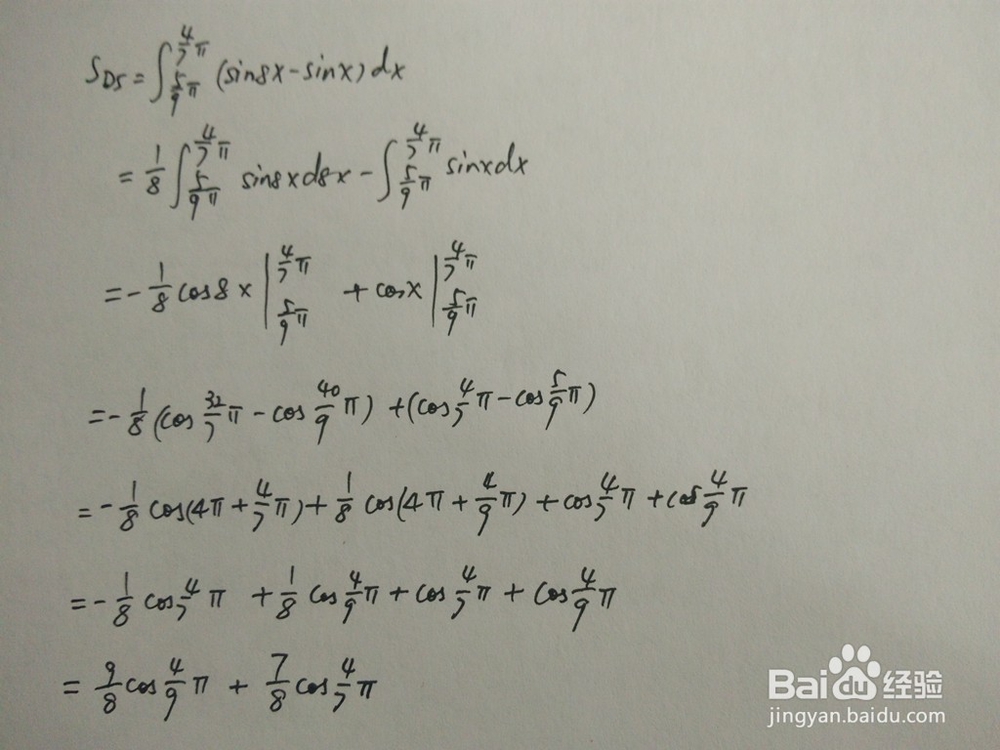 S_{D5} = ∫_{5/9 π}^{4/7 π} (sin8x - sinx) dx
= 1/8 ∫_{5/9 π}^{4/7 π} sin8x d8x - ∫_{5/9 π}^{4/7 π} sinx dx
= - 1/8 cos8x |_{5/9 π}^{4/7 π} + cosx |_{5/9 π}^{4/7 π}
= - 1/8 (cos 32/7 π - cos 40/9 π) + (cos 4/7 π - cos 5/9 π)
= - 1/8 cos(4π + 4/7 π) + 1/8 cos(4π + 4/9 π) + cos 4/7 π + cos 4/9 π
= - 1/8 cos 4/7 π + 1/8 cos 4/9 π + cos 4/7 π + cos 4/9 π
= 9/8 cos 4/9 π + 7/8 cos 4/7 π
Baidu 经验
jingyan.baidu.com